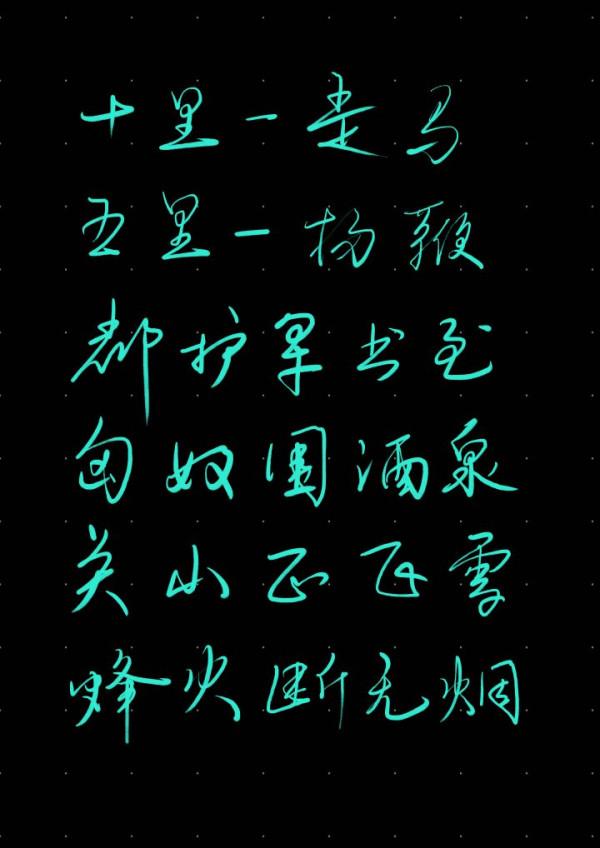 十里一走马
五里一扬鞭
都护軍书至
匈奴圍酒泉
关山正飞雪
烽火断无烟